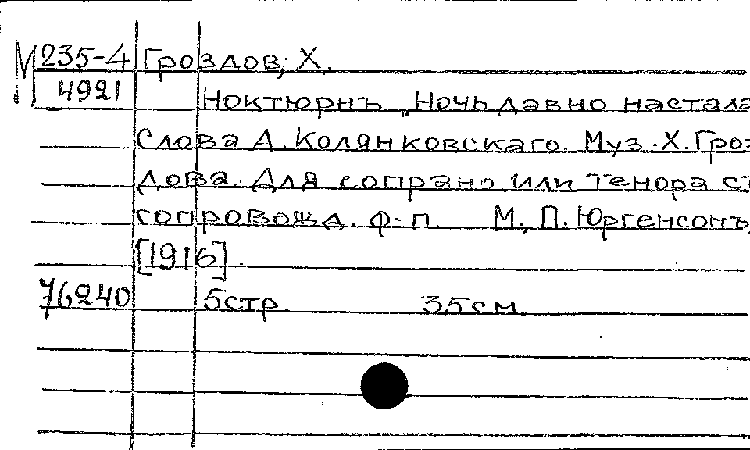 М 235-4 Гроздов, Х.
4921
Ноктюрнъ „Ночь давно настала
Слова А. Колянковскаго. Муз. Х. Гроз
дова. Для сопрано или тенора съ
сопровожд. ф-п. М., П. Юргенсонъ,
[1916].
76240 5 стр. 35 см.